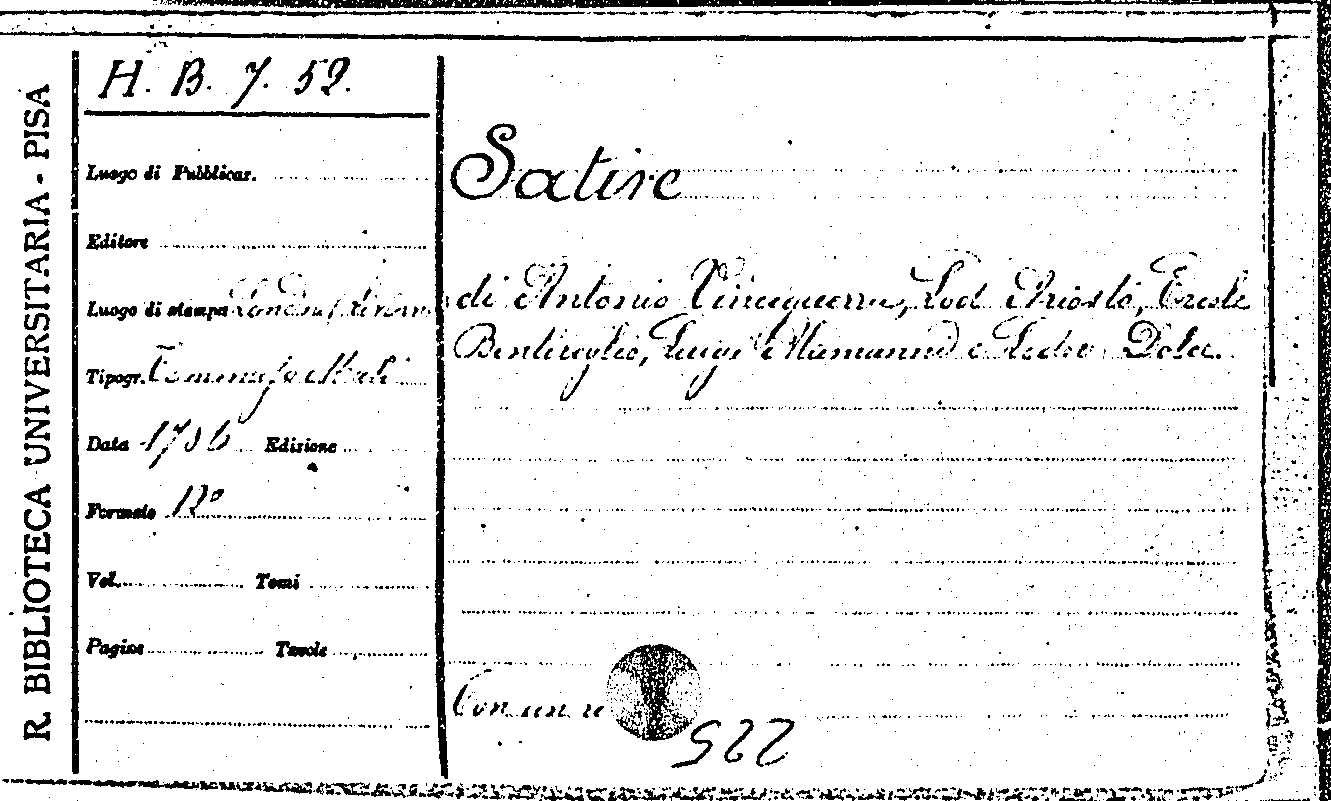 R. BIBLIOTECA UNIVERSITARIA - PISA
H. B. 7. 52.
Luogo di Pubblicaz.
Editore
Luogo di stampa Londra
Tipogr. Tommaso Masi
Data 1786 Edizione
Formato 12º
Vol. Tomi
Pagine Tavole
Satire
di Antonio Vinciguerra, Lod. Ariosto, Ercole
Bentivoglio, Luigi Alamanni e Lodov. Dolce.
Con un
522